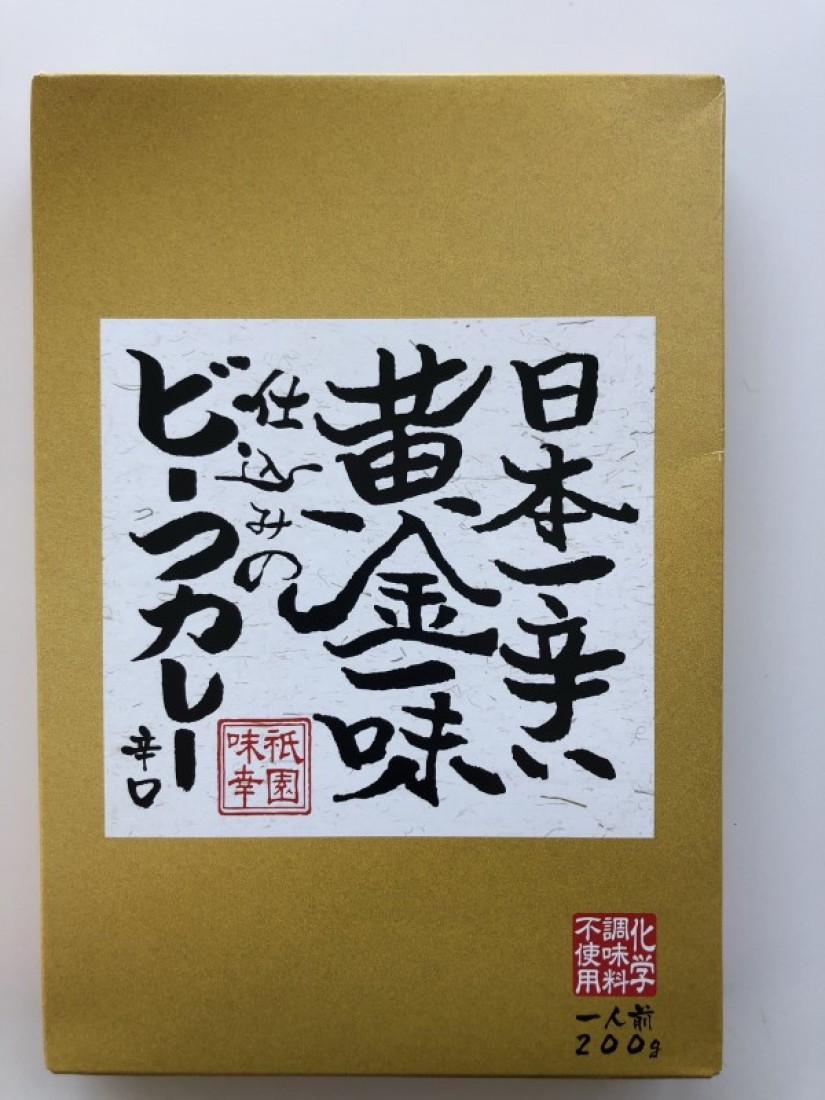 日本一辛い
黄金一味
仕込みの
ビーフカレー
辛口
祇園
味幸
化学
調味料
不使用
一人前
200g